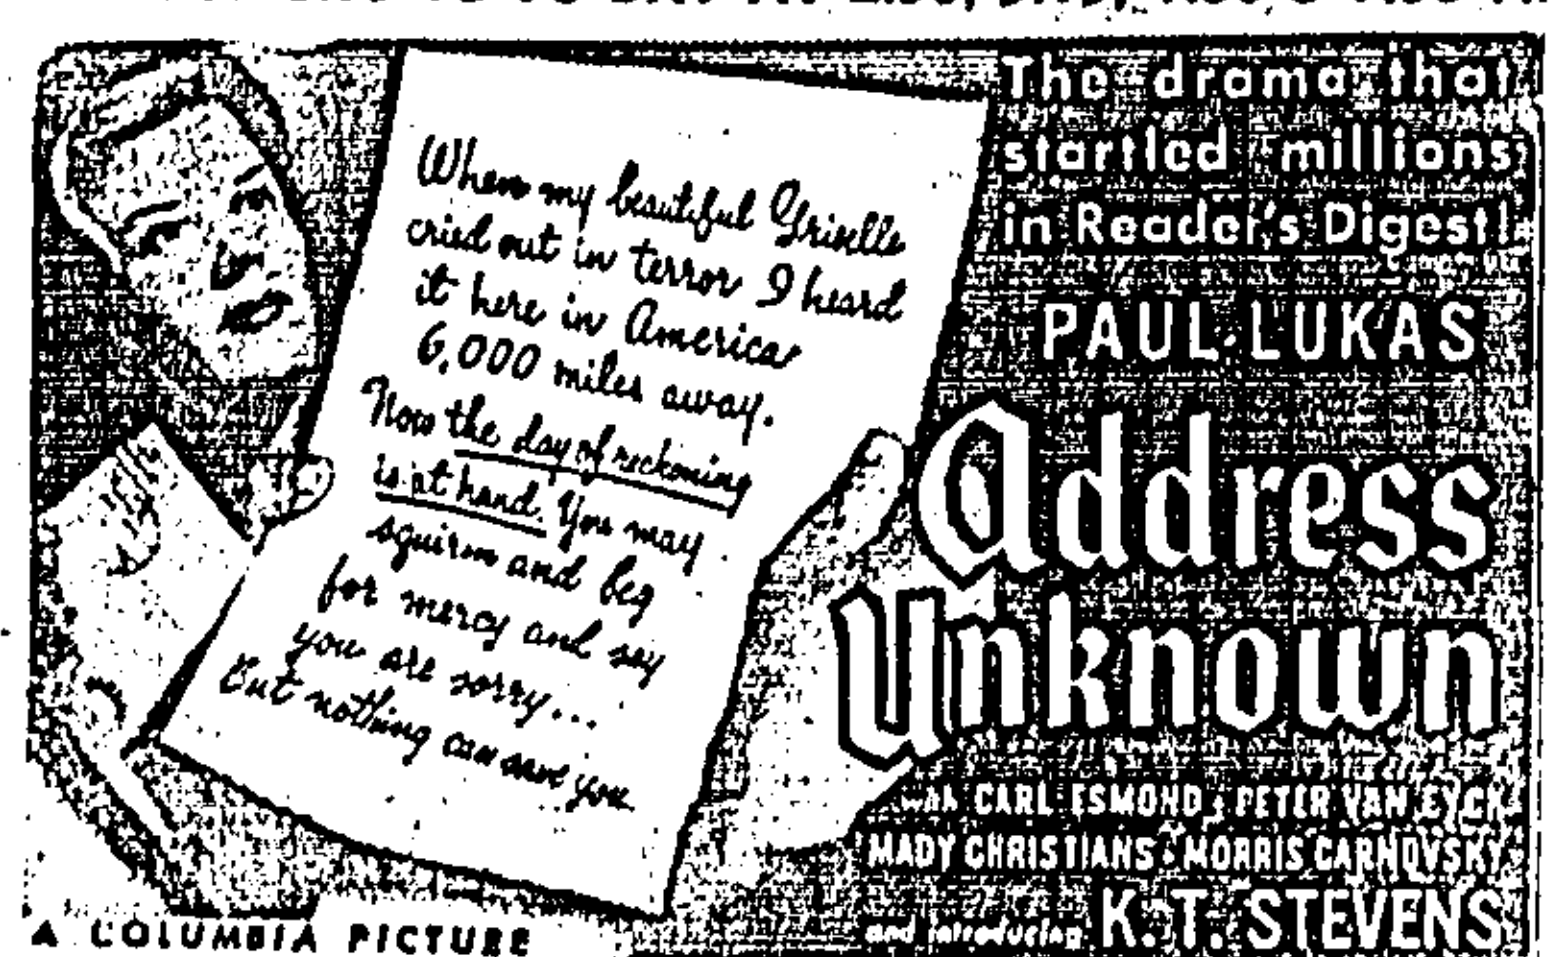 When my beautiful Griselle
cried out in terror I heard
it here in America
6,000 miles away.
Now the day of reckoning
is at hand. You may
squirm and beg
for mercy and say
you are sorry...
But nothing can save you
The drama that
startled millions
in Reader's Digest!
PAUL LUKAS
Address
Unknown
with CARL ESMOND PETER VAN EYCK
MADY CHRISTIANS MORRIS CARNOVSKY
and introducing K. T. STEVENS
A COLUMBIA PICTURE